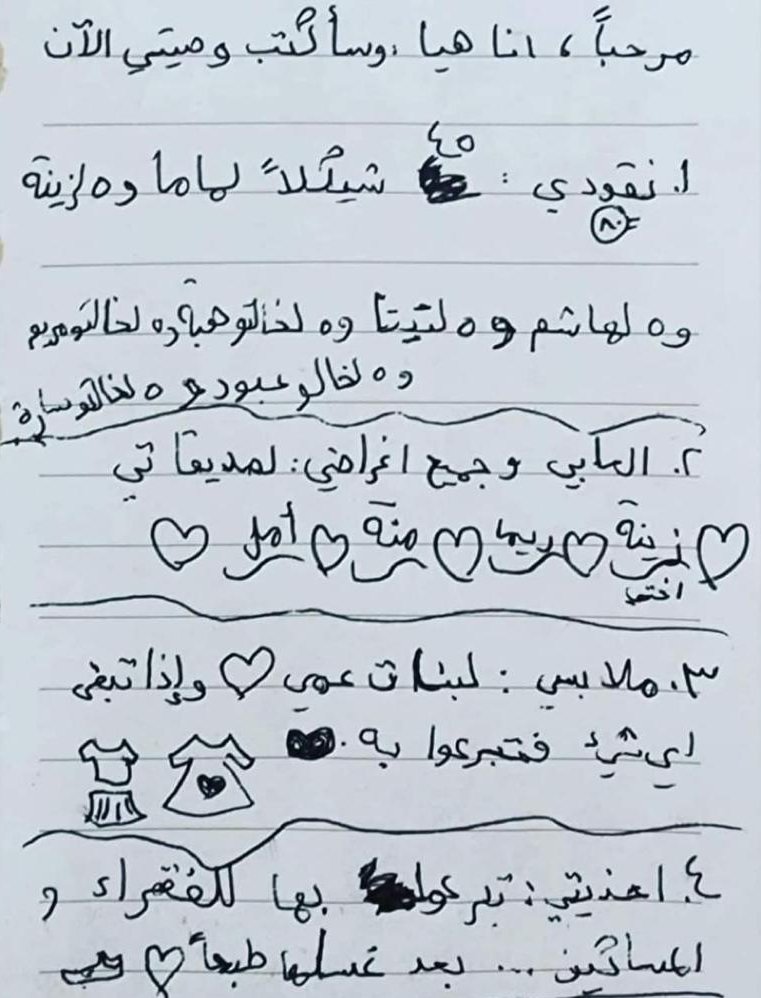 مرحباً ، انا هيا ، وسأكتب وصيتي الآن
٤٥
١. نقودي : شيكلاً لماما و ٥ لزينة
٨٠
و ٥ لهاشم و ٥ لتيتا و ٥ لخالتو هبة و ٥ لخالتو مريم
و ٥ لخالو عبود و ٥ لخالتو سارة
٢. العابي وجميع اغراضي : لصديقاتي
زينة ريما منة أمل
اختي
٣. ملابسي : لبنات عمي وإذا تبقى
اي شيء فتبرعوا به .
٤. احذيتي : تبرعوا بها للفقراء و
المساكين ... بعد غسلها طبعاً